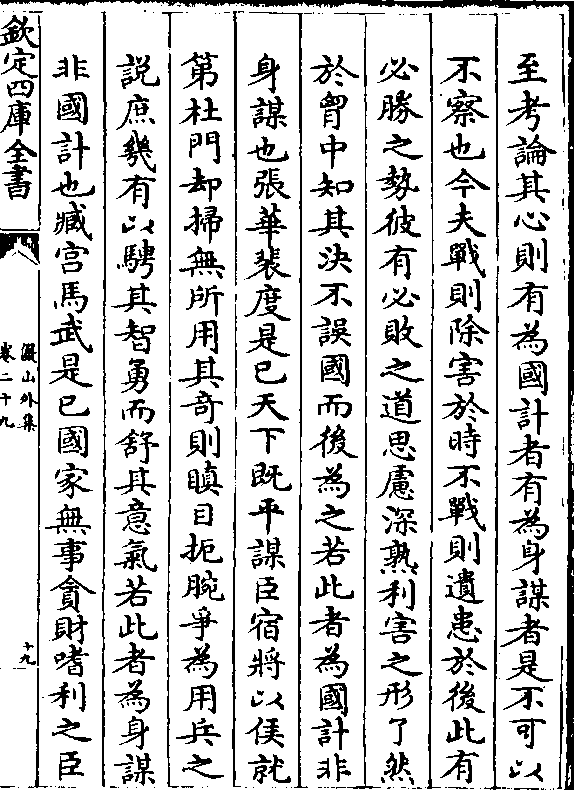 至考論其心則有為國計者有為身謀者是不可以
不察也今夫戰則除害於時不戰則遺患於後此有
必勝之勢彼有必敗之道思慮深熟利害之形了然
於胷中知其決不誤國而後為之若此者為國計非
身謀也張華裴度是已天下既平謀臣宿將以侯就
第杜門却掃無所用其奇則瞋目扼腕爭為用兵之
説庶幾有以騁其智勇而舒其意氣若此者為身謀
非國計也臧宫馬武是已國家無事貪財嗜利之臣
欽定四庫全書
澱山外集
卷二十九
十九